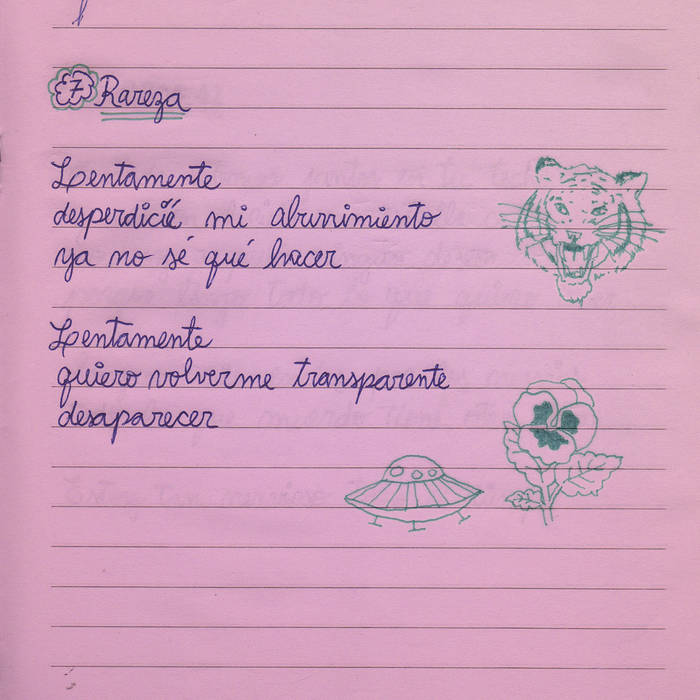 7 Rareza
Lentamente
desperdicié mi aburrimiento
ya no sé qué hacer
Lentamente
quiero volverme transparente
desaparecer